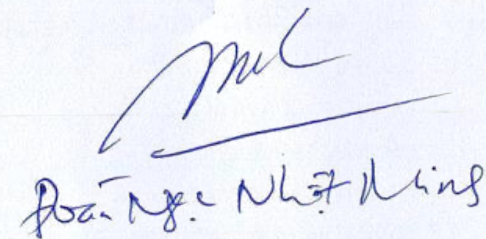 Đoàn Ngọc Nhật Minh